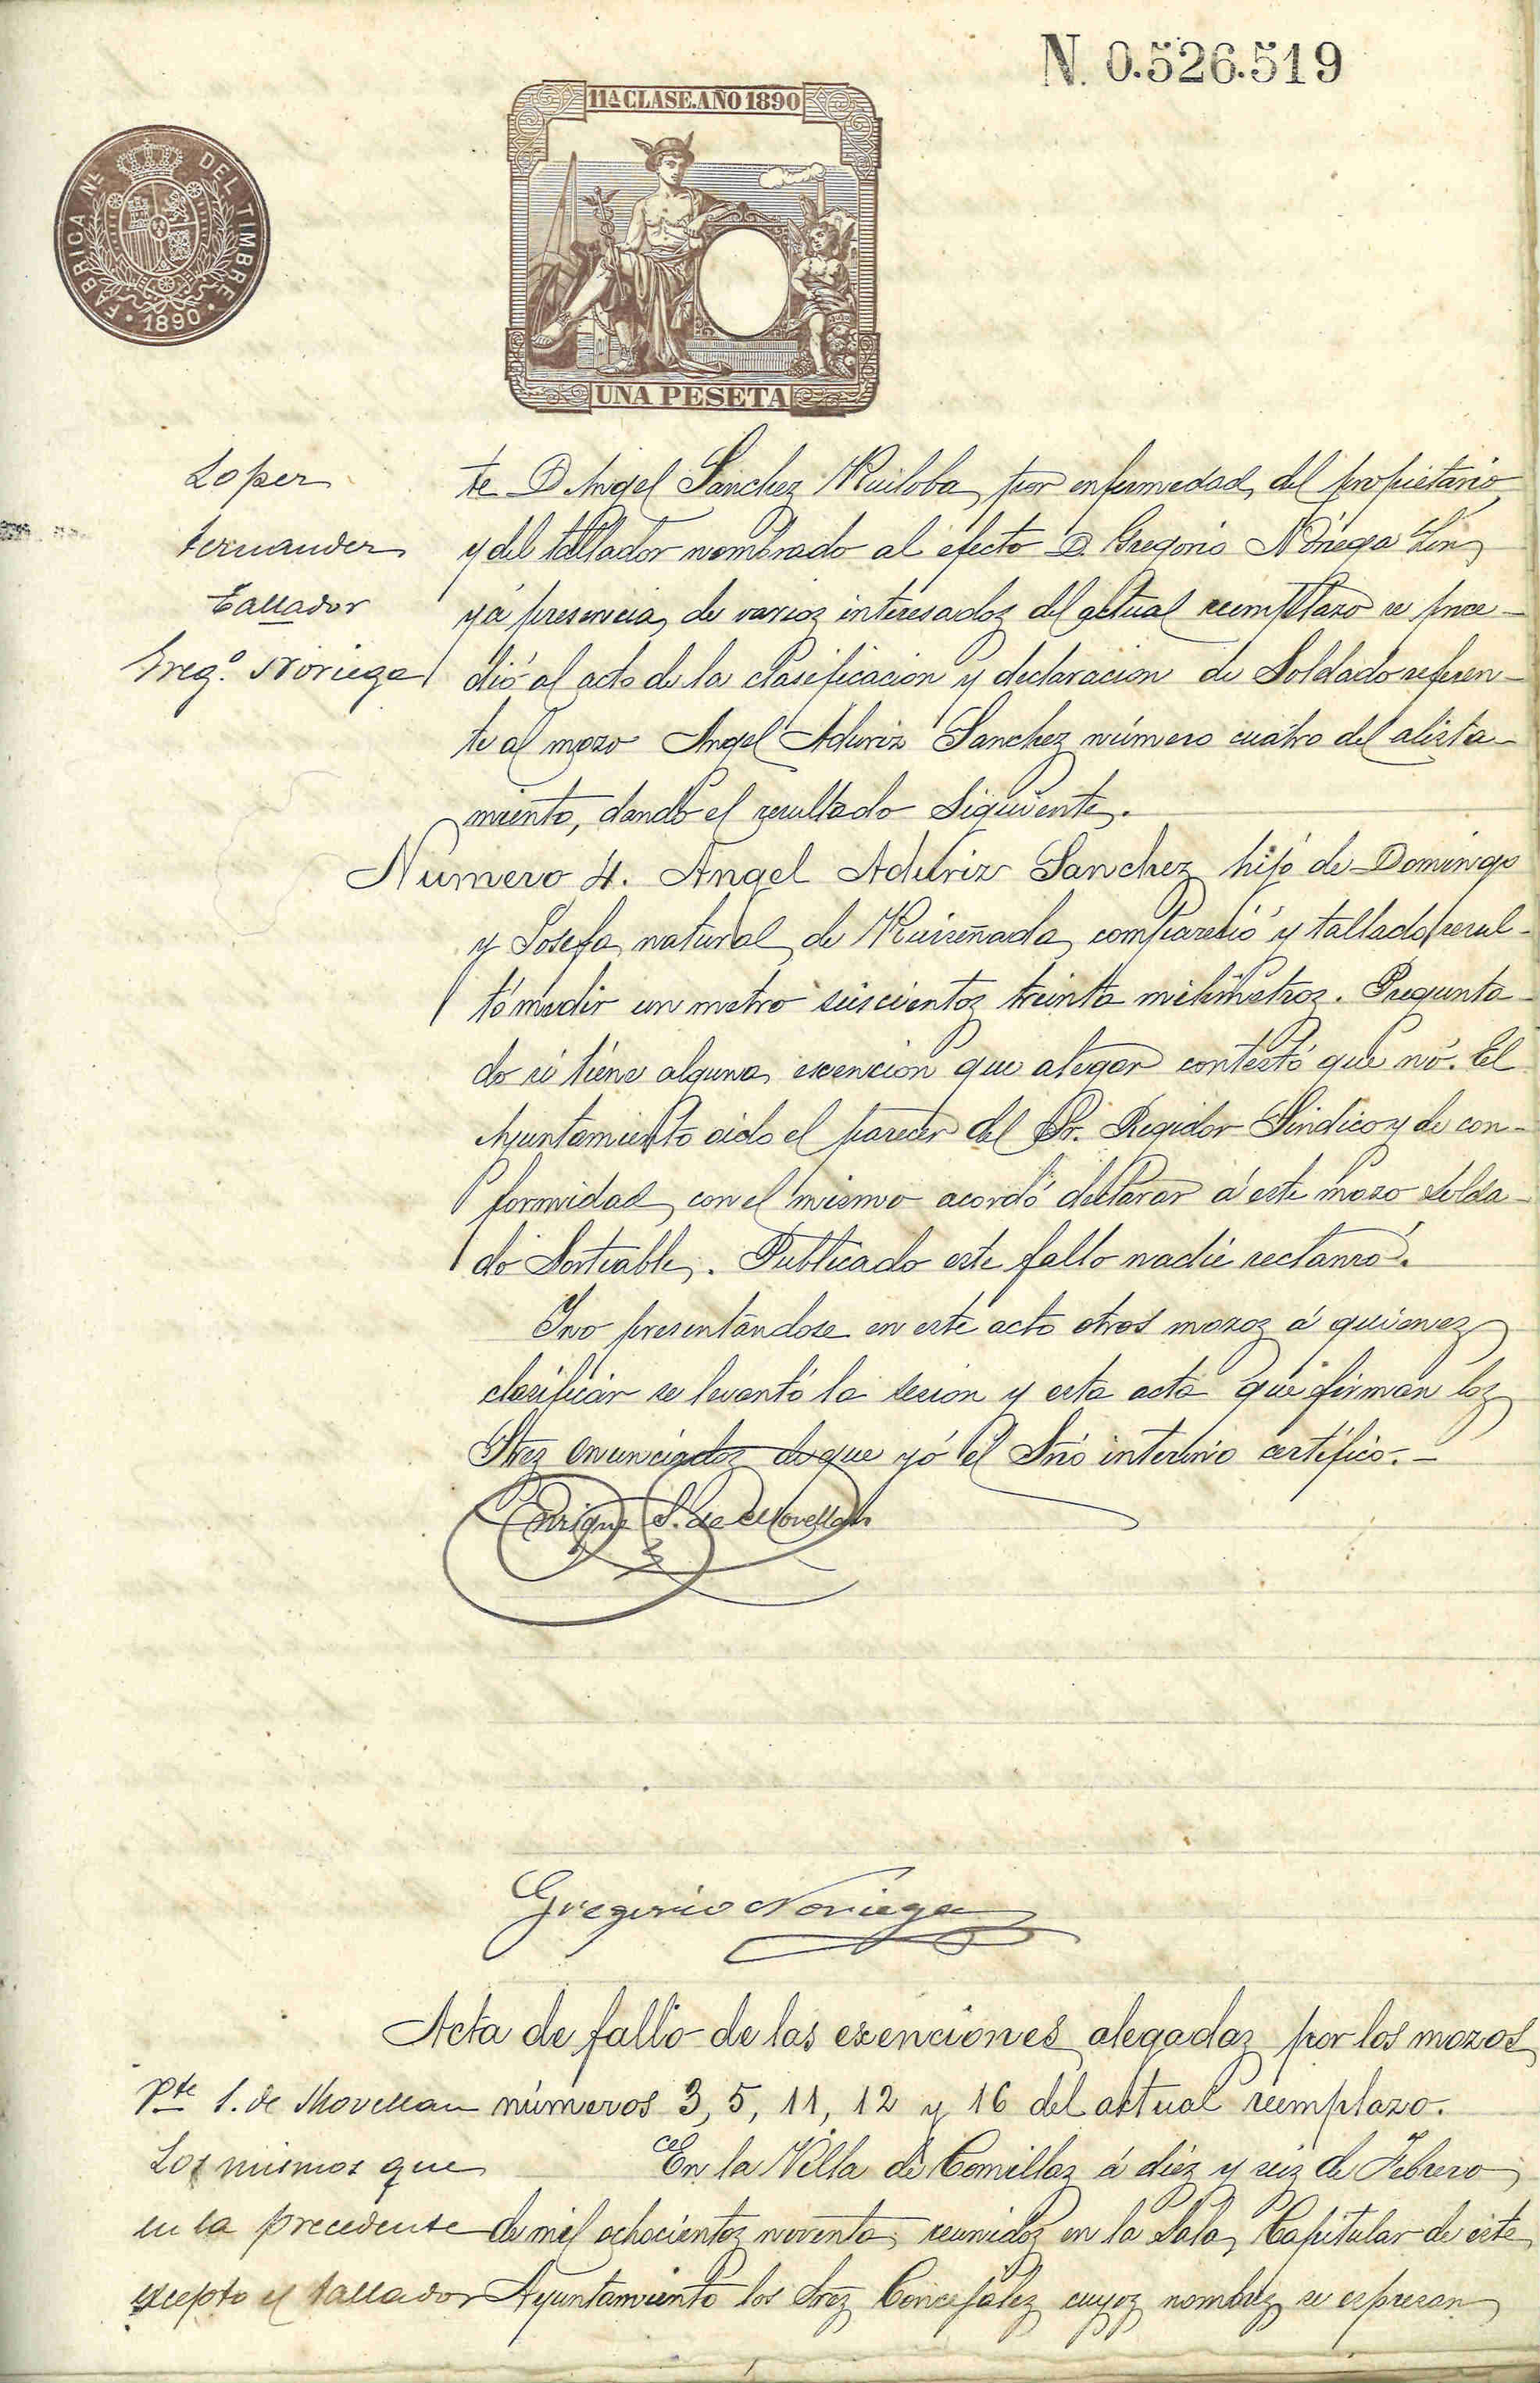 N. 0.526.519
11ª CLASE. AÑO 1890
FABRICA Nˡ DEL TIMBRE
1890
UNA PESETA
Lopez
Fernandez
Tallador
Greg.º Noriega
te D. Angel Sanchez Ruiloba, por enfermedad, del propietario,
y del tallador nombrado al efecto D. Gregorio Noriega
y á presencia, de varios interesados del actual reemplazo se proce-
dió al acto de la clasificacion y declaracion de Soldado referen-
te al mozo Angel Aduriz Sanchez número cuatro del alista-
miento, dando el resultado siguiente.
Número 4. Angel Aduriz Sanchez hijo de Domingo
y Josefa, natural de Ruiseñada, compareció y tallado resul-
tó medir un metro seiscientos treinta milimetros. Pregunta-
do si tiene alguna, exencion que alegar contestó que nó. El
Ayuntamiento oido el parecer del Sr. Regidor Sindico y de con-
formidad, con el mismo acordó declarar á este mozo solda-
do Sorteable,. Publicado este fallo nadie reclamó.
Y no presentándose en este acto otros mozos á quienes
clasificar se levantó la sesion y esta acta que firman los
Sres enunciados de que yó el Srio interino certifico.-
Enrique S. de Movellan
Gregorio Noriega
Acta de fallo de las exenciones alegadas por los mozos
Pte S. de Movellan números 3, 5, 11, 12 y 16 del actual reemplazo.
Los mismos que En la Villa de Comillas á diéz y seis de Febrero
en la precedente de mil ochocientos noventa, reunidos en la Sala, Capitular de este
excepto el tallador Ayuntamiento los Sres Concejales cuyos nombres se espresan